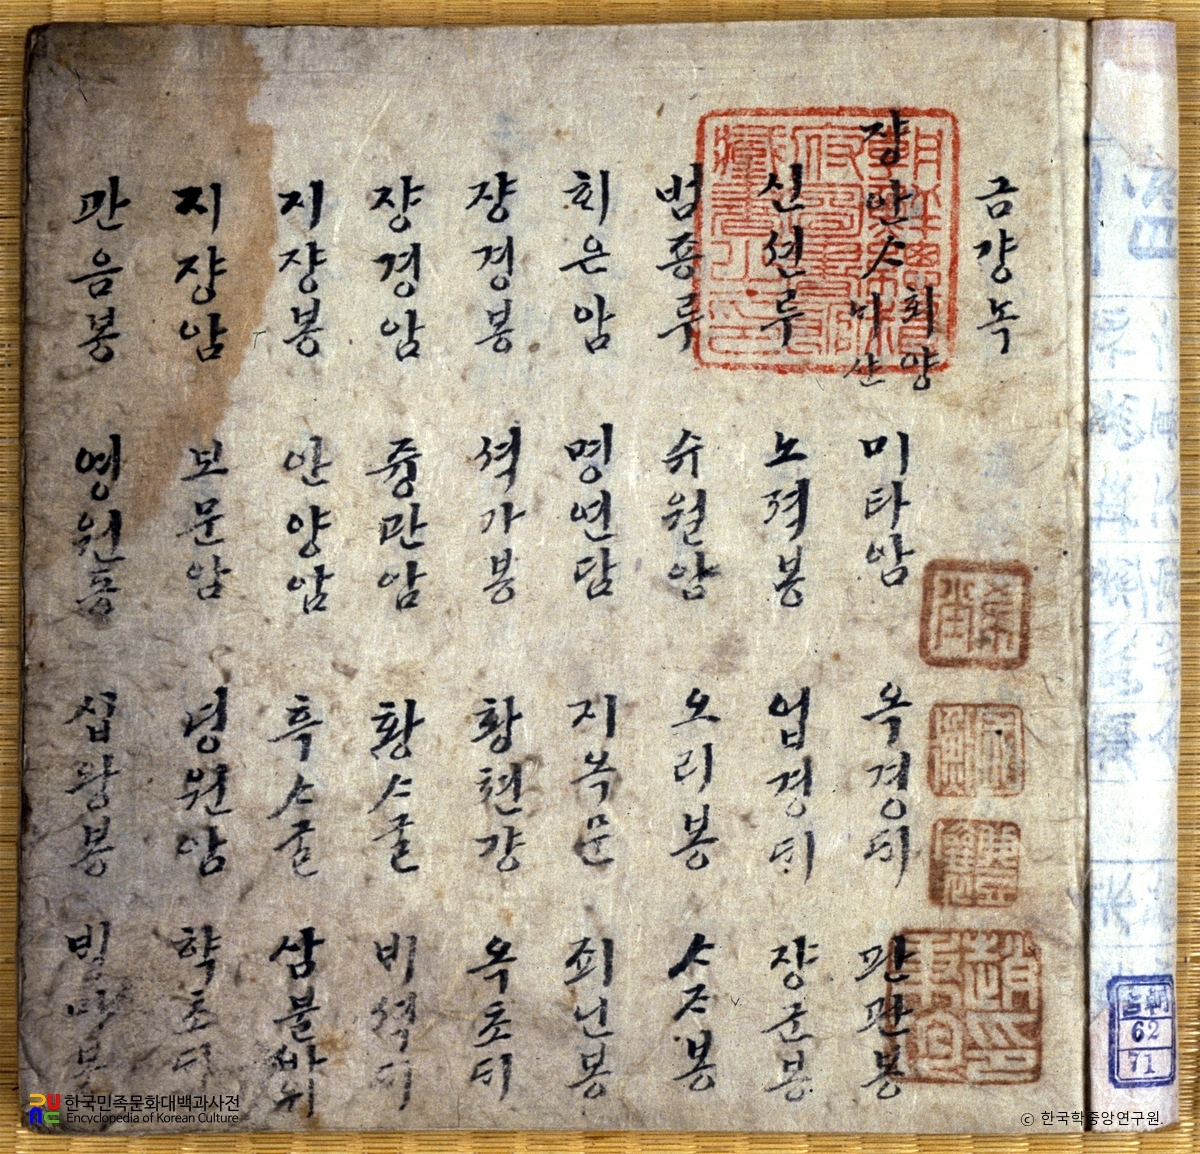 금걍녹
쟝안ᄉᆞ 회양 ᄂᆡ산 미타암 옥경ᄃᆡ 판관봉
신션루 노젹봉 업경ᄃᆡ 쟝군봉
범죵루 슈월암 오리봉 ᄉᆞᄌᆞ봉
회은암 명연담 지옥문 죄닌봉
쟝경봉 셕가봉 황쳔걍 옥초ᄃᆡ
쟝경암 즁관암 황ᄉᆞ굴 비셕ᄃᆡ
지쟝봉 안양암 흑ᄉᆞ굴 삼불바위
지쟝암 보문암 녕원암 학초ᄃᆡ
관음봉 영원동 십왕봉
朝鮮總督府圖書館藏書之印
古朝
62
71
한국민족문화대백과사전
Encyclopedia of Korean Culture
© 한국학중앙연구원.